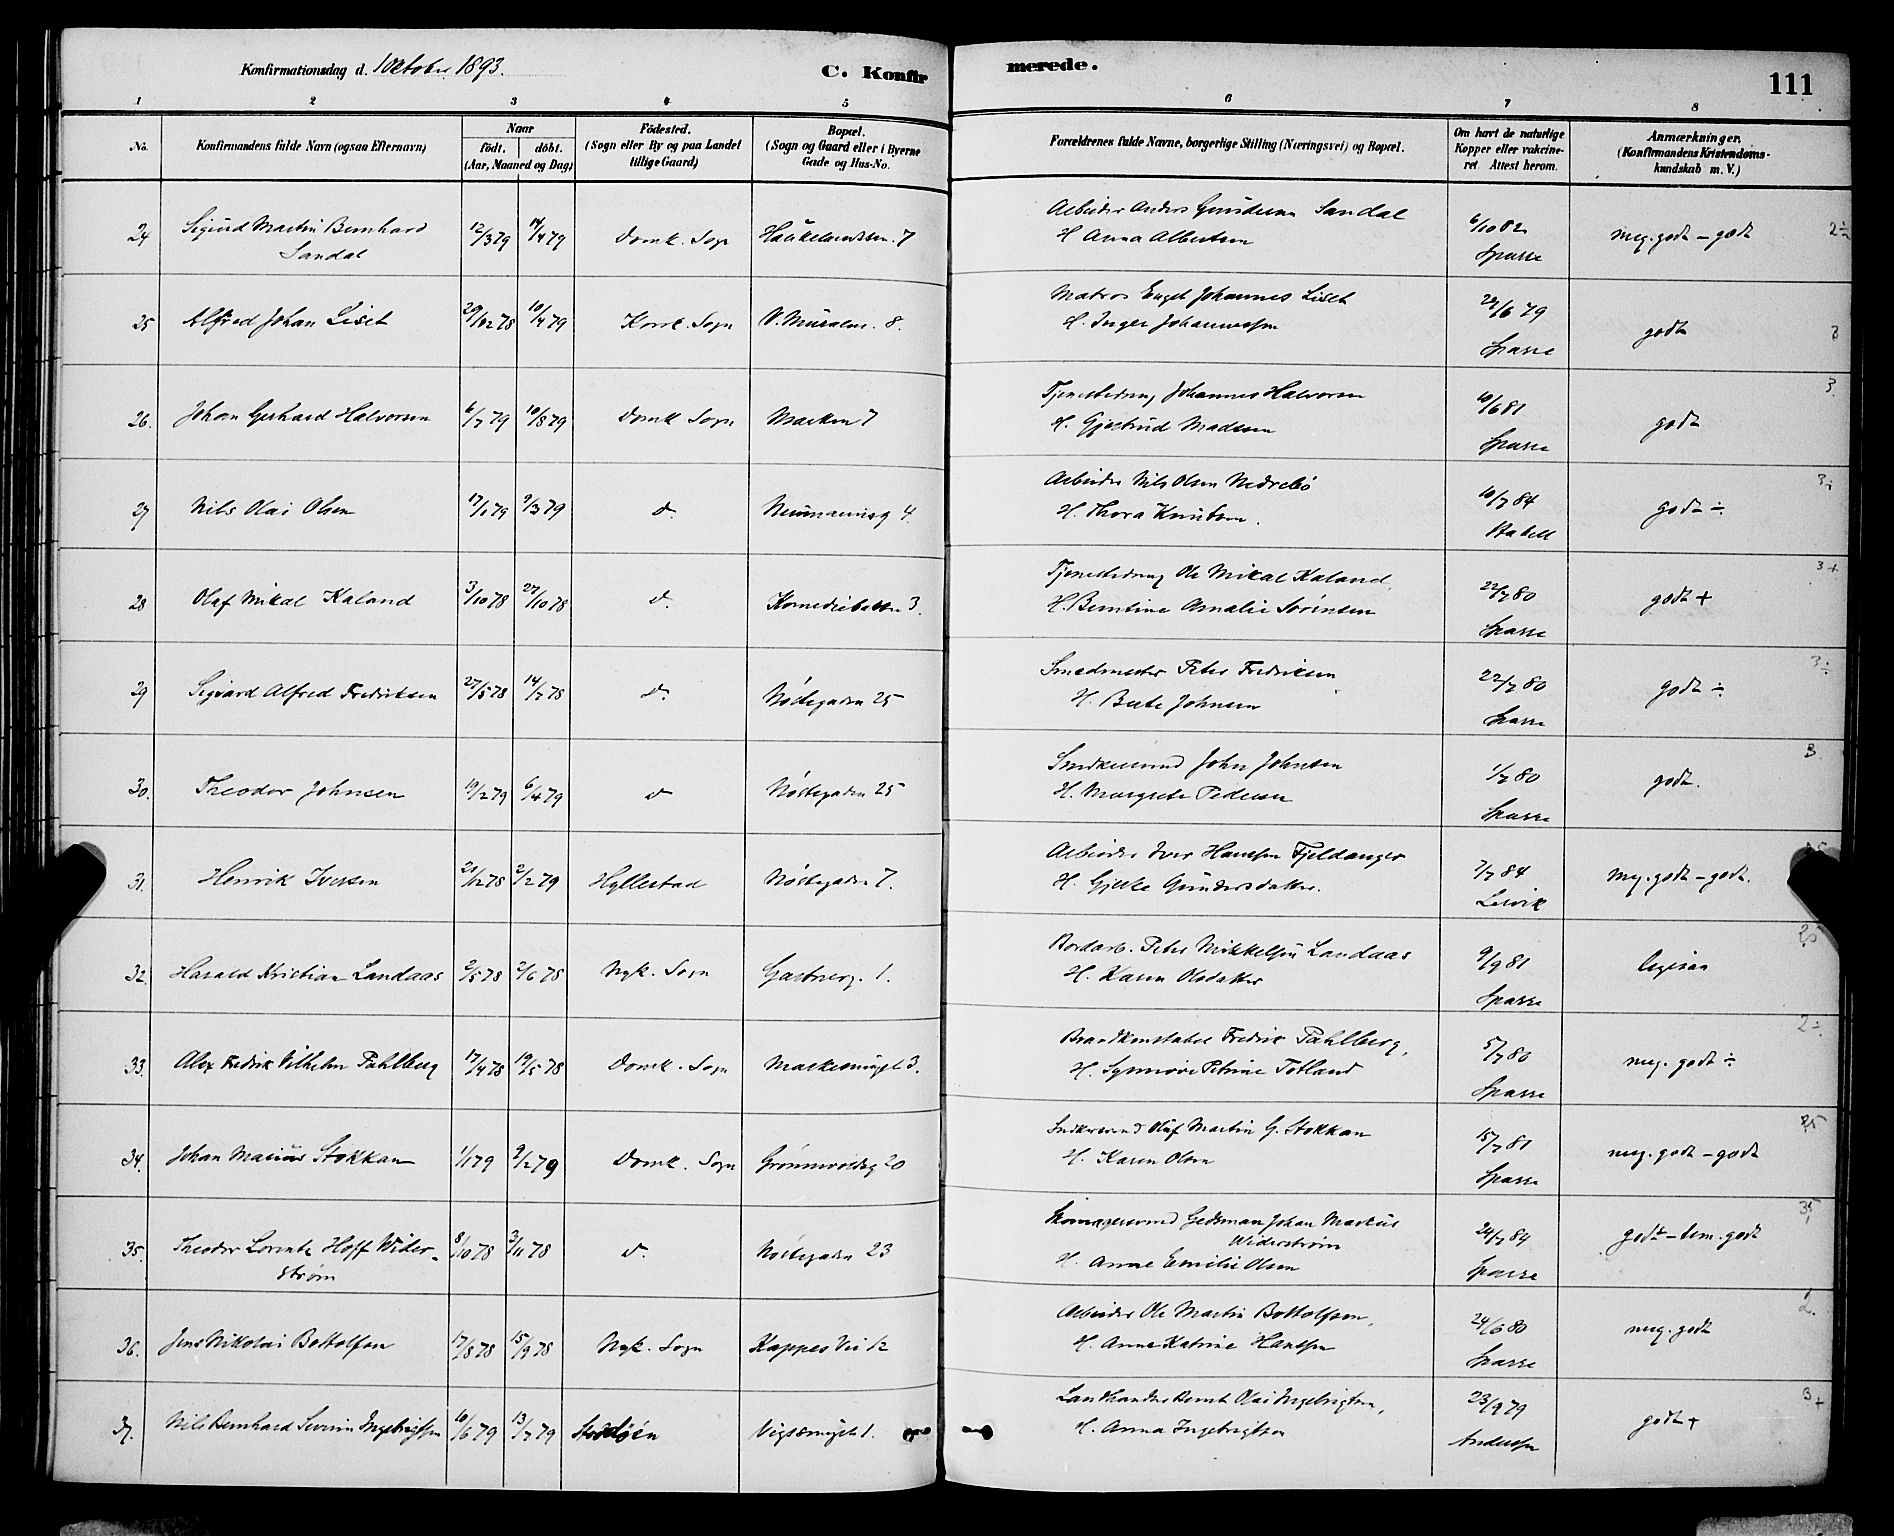 Konfirmationsdag d. 1 Oktober 1893.
C. Konfirmerede.
111
1 2 3 4 5 6 7 8
No.
Konfirmandens fulde Navn (ogsaa Efternavn)
Naar
födt. döbt.
(Aar, Maaned og Dag)
Födested.
(Sogn eller By og paa Landet
tillige Gaard)
Bopæl.
(Sogn og Gaard eller i Byerne
Gade og Hus-No.
Forældrenes fulde Navne, borgerlige Stilling (Næringsvei) og Bopæl.
Om havt de naturlige
Kopper eller vakcine-
ret Attest herom.
Anmærkninger.
(Konfirmandens Kristendoms-
kundskab m. V.)
24 Sigurd Martin Bernhard
Sandal
12/3 79 14/4 79 Domk. Sogn 7
Arbeider Anders Sandal
H. Anna Albertsen
6/10 82
Sparre
meg. godt – godt
25 Alfred Johan Liset 29/12 78 10/4 79 Kors k. Sogn 8.
Matros Engel Johannes Liset
H. Inger Johannessen
24/6 79
Sparre
godt
3
26. Johan Gerhard Halvorsen 6/7 79 10/8 79 Domk Sogn Marken 7
Johannes Halvorsen
H. Gjertrud Madsen
10/6 81
Sparre
godt
3.
27 Nils Olai Olsen 17/1 79 9/3 79 d. Neumannsg 4.
Arbeider Nils Olsen Nedrebö
H. Thora Knutsen.
10/7 84
godt ÷
3÷
28 Olaf Mikal Kaland 3/10 78 27/10 78 d. 3.
Ole Mikal Kaland,
H. Berntine Amalie Sörensen
22/7 80
Sparre
godt +
3+
29 Sigvard Alfred Fredriksen 27/5 78 14/7 78 d. Nöstegaden 25
Smedmester Peter Fredriksen
H. Berte Johnsen
22/7 80
Sparre
godt ÷
3÷
30. Theodor Johnsen 19/2 79 6/4 79 d Nöstegaden 25
Snedkersvend John Johnsen
H. Margrete Pedersen
1/7 80
Sparre
godt.
3.
31. Henrik Iversen 21/12 78 2/2 79 Hyllestad Nöstegaden 7.
Arbeider Iver Hanssen Fjeldanger
H. Gjerte Gundersdatter.
7/7 84
Leivik
meg. godt – godt.
32. Harald Kristian Landaas 2/5 78 2/6 78 Nyk. Sogn 1.
Bordarb. Peter Mikkelsen Landaas
H. Karen Olsdatter
9/9 81
Sparre
ligesaa
2,5
33. Alex Fredrik Vilhelm Pahlberg 17/4 78 19/5 78 Domk. Sogn Markesmuget 3.
Brandkonstabel Fredrik Pahlberg,
H. Synnöve Petrine Totland
5/7 80
Sparre
meg. godt ÷
2÷
34. Johan Marius Stokkan 1/1 79 9/2 79 Domk. Sogn 20
Snedkersvend Oluf Martin G. Stokkan
H. Karen Olsen
15/7 81
Sparre
meg. godt – godt
2,5
35. Theodor Lorentz Hoff Wider-
ström
8/10 78 3/11 78 d. Nöstegaden 23
Skomagersvend Gedeman Johan Markus
Widerström
H. Anne Emilie Olsen
24/7 84
Sparre
godt – tem. godt
3,5
36. Jens Nikolai Bottolfsen 17/8 78 15/9 78 Nyk. Sogn Kappes Vei 12
Arbeider Ole Martin Bottolfsen,
H. Anne Katrine Hanssen
24/6 80
Sparre
meg. godt
2.
37. Nils Bernhard Severin Ingebrigtsen 10/6 79 13/7 79 1.
Landhandler Bernt Olai Ingebrigtsen,
H. Anna Ingebrigtsen
23/9 79
Anderssen
godt +
3+